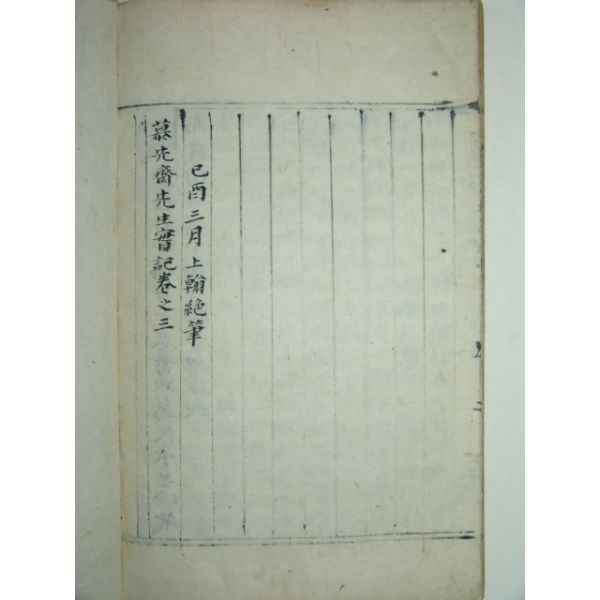 己酉三月上翰絶筆
慕先齋先生實記卷之三